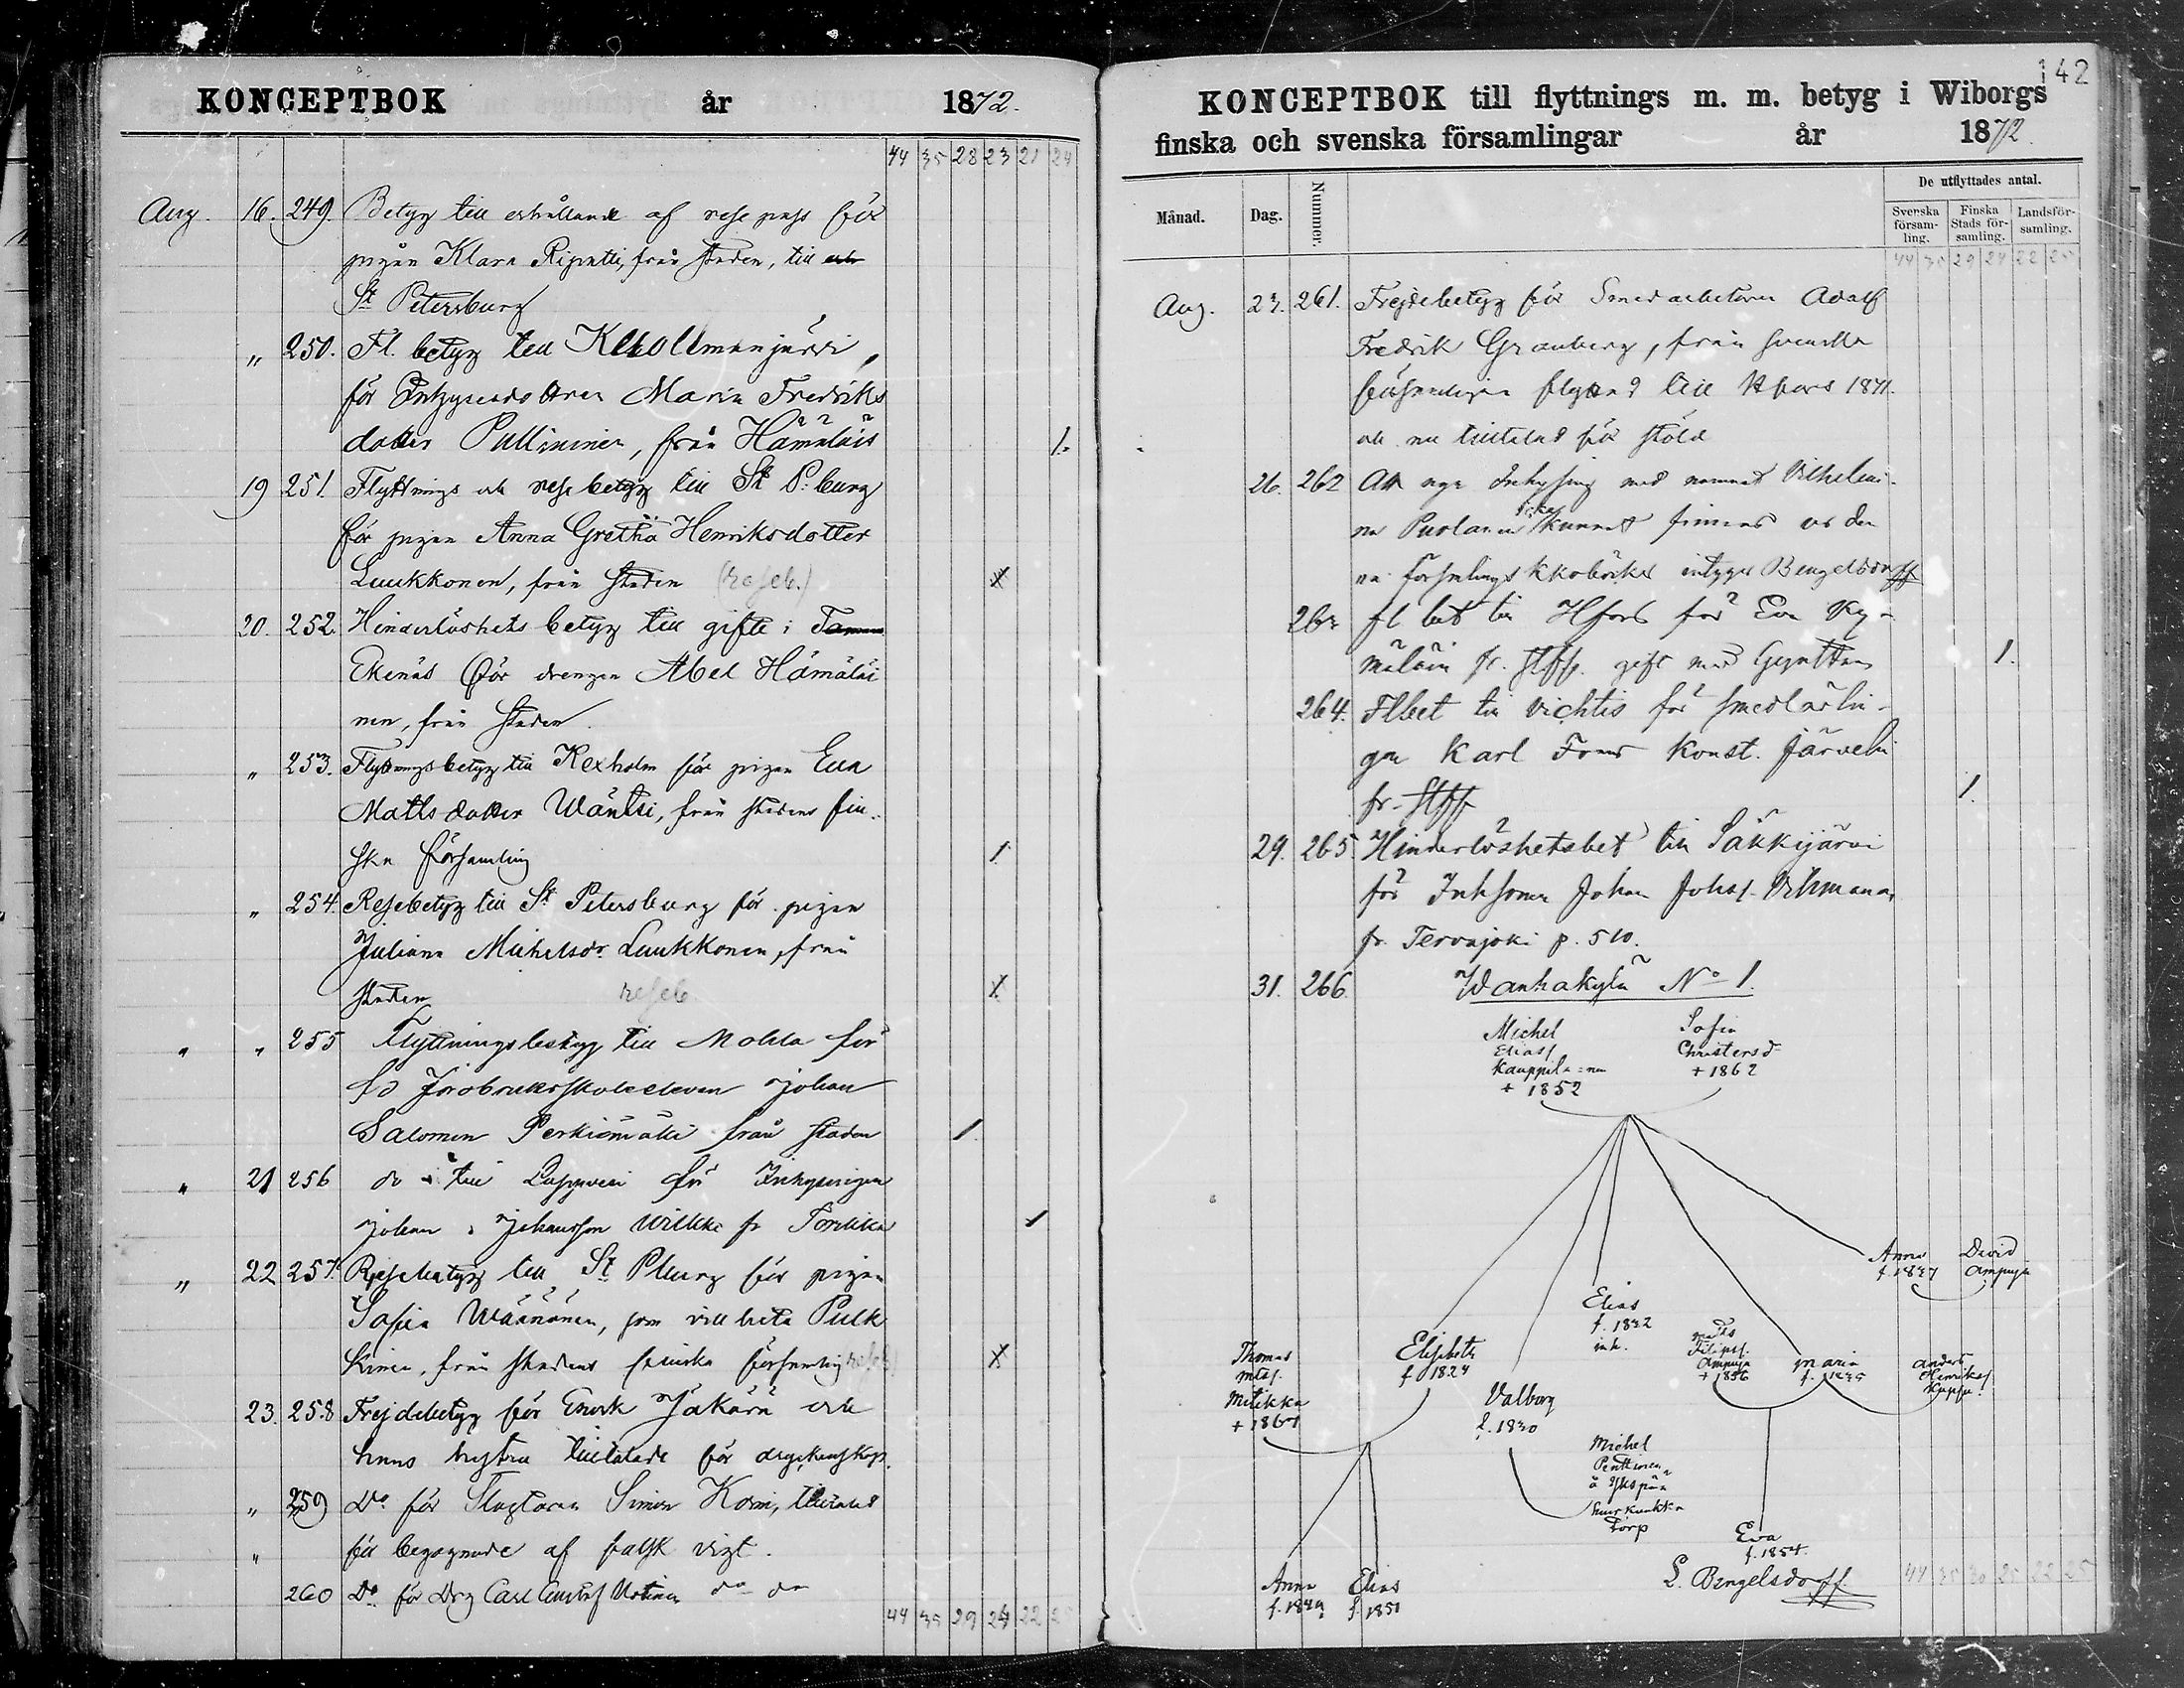 KONCEPTBOK år 1872.
44 35 28 23 21 24
Aug. 16. 249. Betyg till erhållande af rese pass för
pigan Klara Ripatti, från staden, till
St Petersburg
„ 250. Fl. betyg till Klkollmanjärvi,
för Inhysesdottren Maria Fredriks
dotter Pullininen, från Hämäläis 1.
19 251. Flyttnings och resebetyg till St P:burg
för pigan Anna Gretha Henriksdotter
Luukkonen, från staden (reseb.) X
20. 252. Hinderlöshets betyg till gifte i
Ekenäs för drengen Abel Hämäläi
nen, från staden.
„ 253. Flyttningsbetyg till Kexholm för pigan Eva
Mattsdotter Wäntsi, från stadens fin-
ska församling 1
„ 254. Resebetyg till St Petersburg för pigan
Juliana Michelsdr Luukkonen, från
staden reseb X
„ „ 255 Flyttningsbetyg till Mohla för
fd Jordbruksskoleeleven Johan
Salomon Perkiömäki från staden 1
„ 21 256 do till Lappvesi för Inhysingen
Johan Johansson Wilkki fr 1
„ 22 257. Resebetyg till St Pburg för pigan
Sofia Wäänänen, som vill heta Pulk
kinen, från stadens finska församling reseb X
23. 258 Frejdebetyg för Enok Jäkärä och
hans hustru tilltalade för dryckenskap.
„ 259 Do för Slagtaren Simon Kosin, tilltalad
„ för begagnade af falsk vigt.
260 Do för Drg Carl Gustaf do do
44 35 29 24 22 25
142
KONCEPTBOK till flyttnings m. m. betyg i Wiborgs
finska och svenska församlingar år 1872
Månad. Dag. Nummer. De utflyttades antal.
Svenska församling. Finska Stads församling. Landsförsamling.
44 35 29 24 22 25
Aug. 23. 261. Frejdebetyg för Smedarbetaren Adolf
Fredrik Granberg, från svenska
församlingen flyttad till Hfors 1871.
och nu tilltalad för stöld
26. 262 Att nya Inhysing med namnet Vilhelmi-
na Puolanen icke kunnat finnas ur den
na församlings kkoböcker intygar Bengelsdorff
263 fl bet till Hfors för Eva Hy-
mäläin fr. Stff. gift med 1.
264. Flbet till Vichtis för smedlärlin-
gen Karl Konst. Järvelin
fr. Stff 1.
29. 265. Hinderlöshetsbet till Säkkijärvi
för Inhsonen Johan Johas. Vihmanen
fr. Tervajoki p. 510.
31. 266. Wanhakylä No 1.
Michel Eliass Kauppila=nen + 1852
Sofia Christersd + 1862
Anna f. 1837 David Ampuja
Elias f. 1832 inh.
Thomas Mts. Mitikka + 1867
Elisabeth f 1824
Valborg f. 1830
Matts Filipss. Ampuja + 1856
Maria f. 1835
Anders Henrikss.
Michel Penttinen å
torp
Eva f. 1854.
Anna f. 1849 Elias f. 1851
L. Bengelsdorff
44 35 30 25 22 25